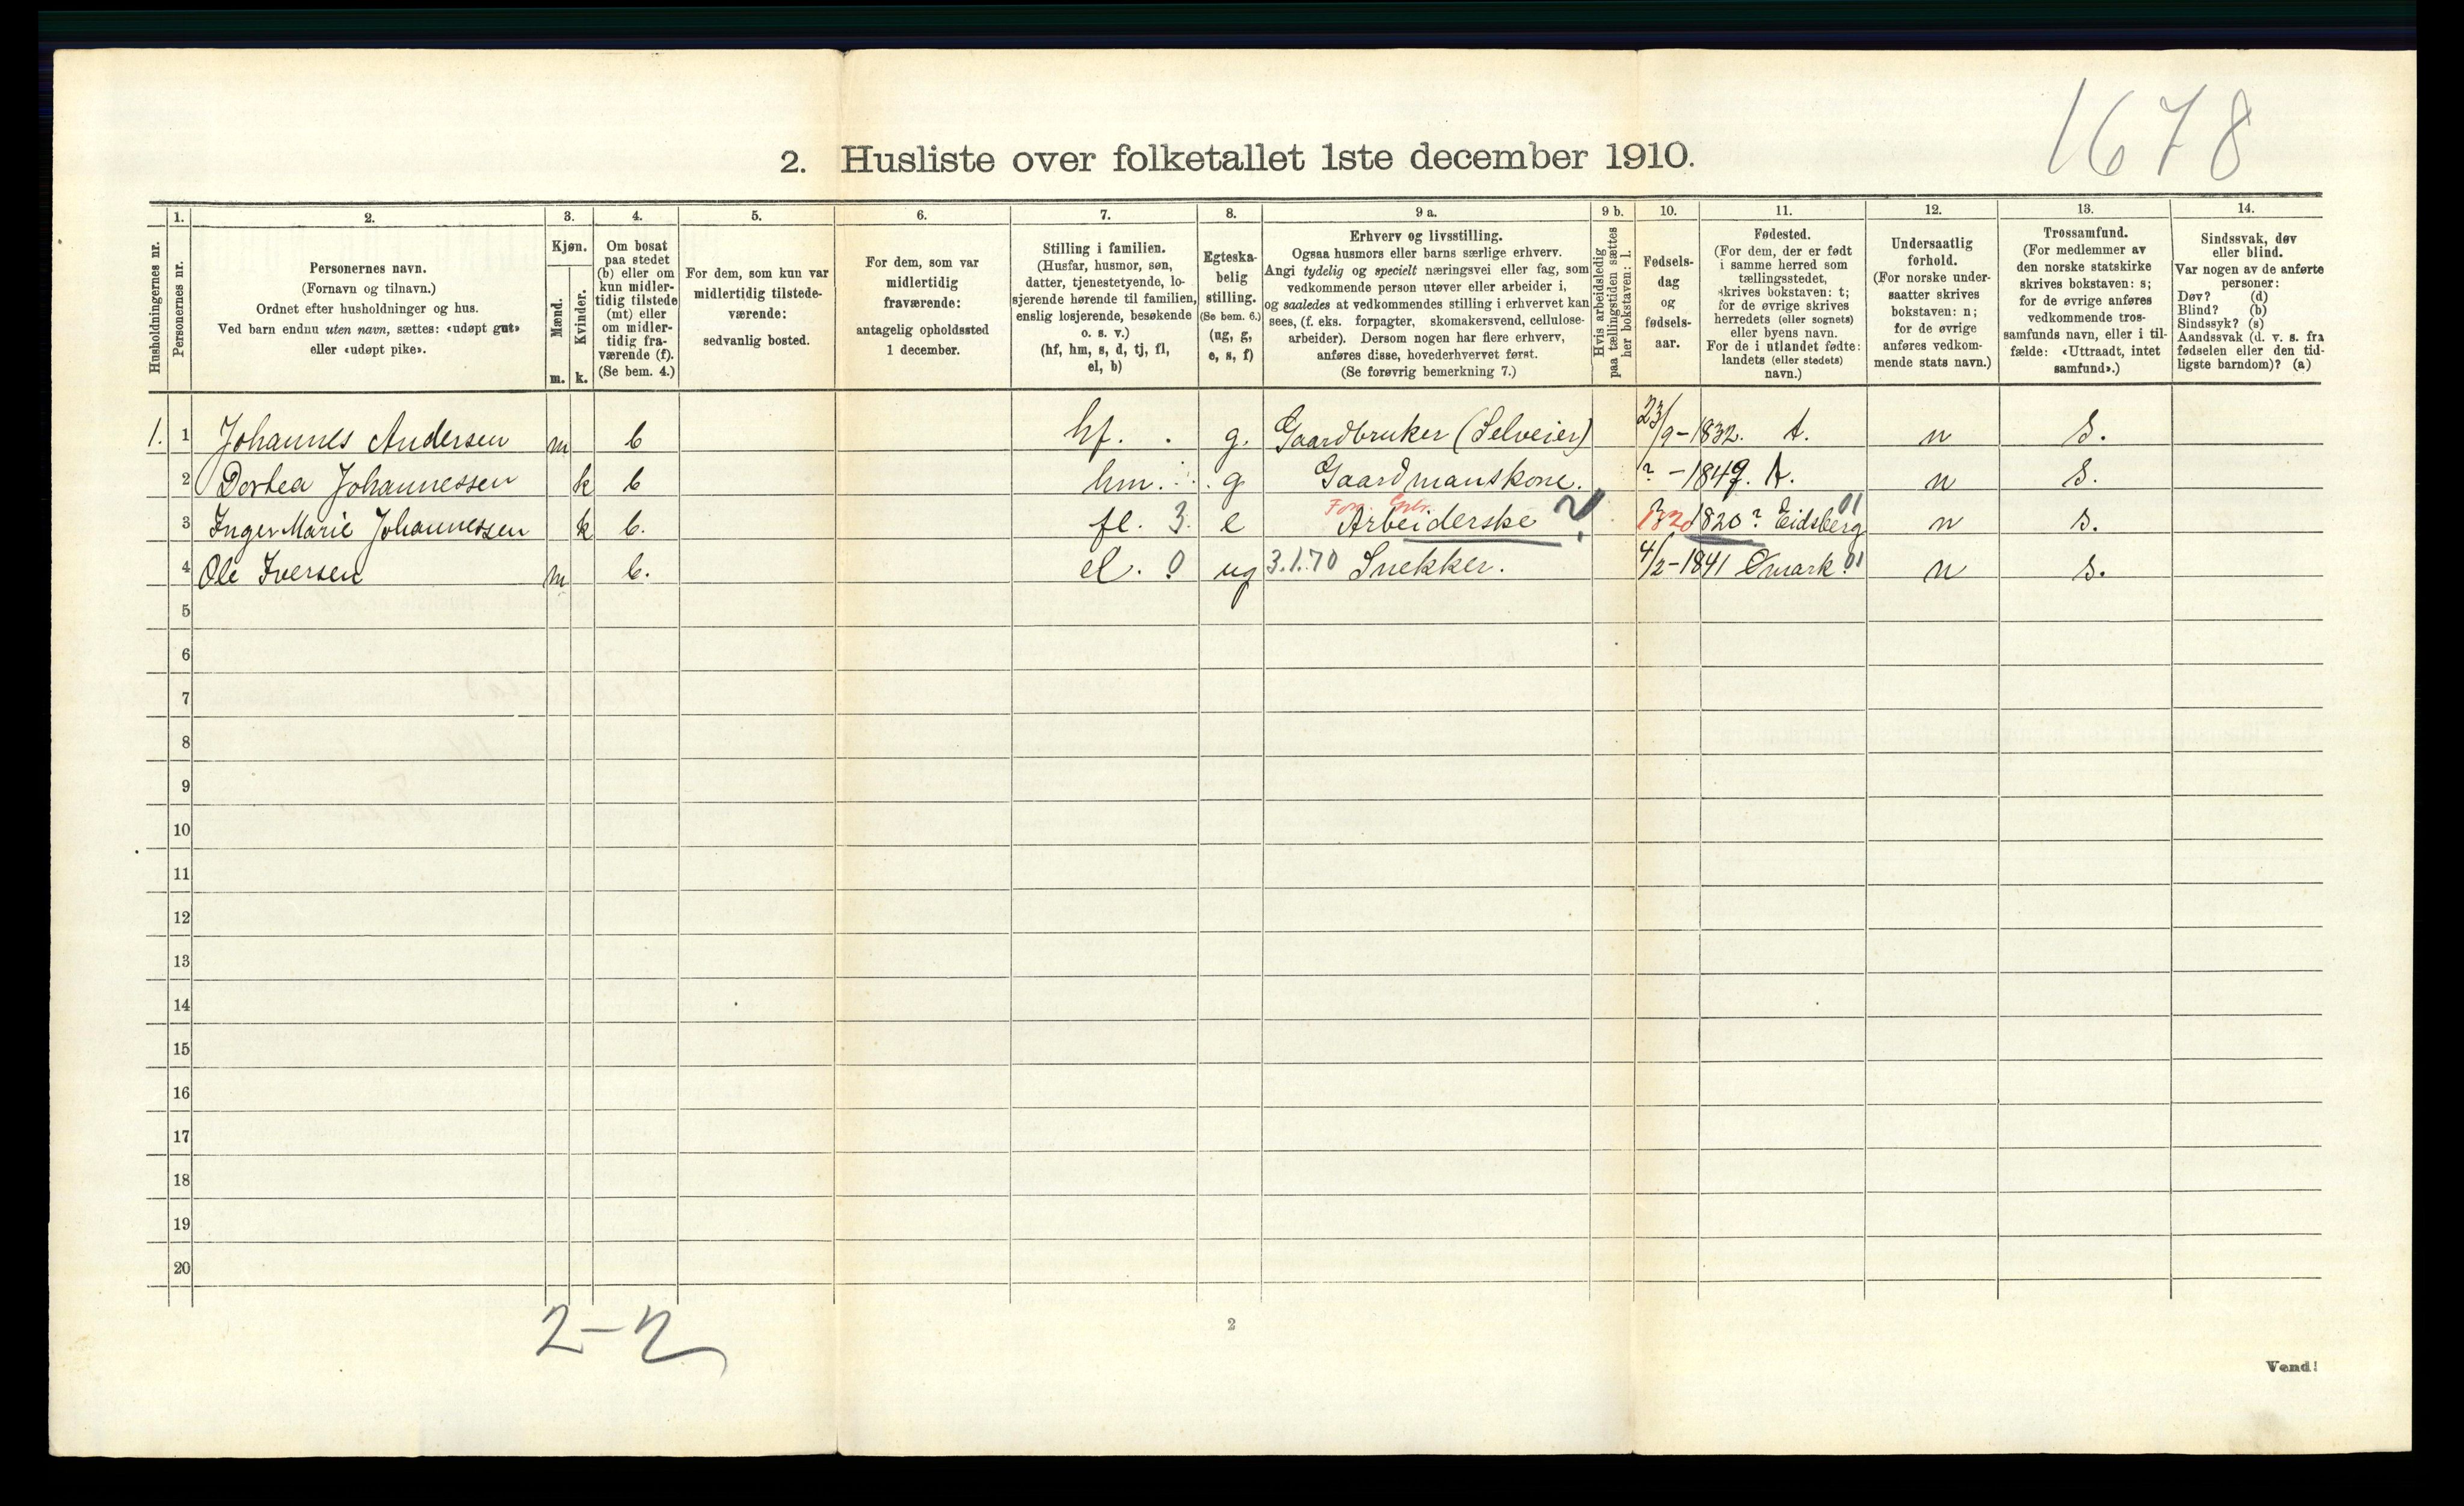 1678
2. Husliste over folketallet 1ste december 1910.
Husholdningernes nr.
1.
Personernes nr.
2.
Personernes navn.
(Fornavn og tilnavn.)
Ordnet efter husholdninger og hus.
Ved barn endnu uten navn, sættes: «udøpt gut»
eller «udøpt pike».
3.
Kjøn.
Mænd.
Kvinder.
m. k.
4.
Om bosat
paa stedet
(b) eller om
kun midler-
tidig tilstede
(mt) eller
om midler-
tidig fra-
værende (f).
(Se bem. 4.)
5.
For dem, som kun var
midlertidig tilstede-
værende:
sedvanlig bosted.
6.
For dem, som var
midlertidig
fraværende:
antagelig opholdssted
1 december.
7.
Stilling i familien.
(Husfar, husmor, søn,
datter, tjenestetyende, lo-
sjerende hørende til familien,
enslig losjerende, besøkende
o. s. v.)
(hf, hm, s, d, tj, fl,
el, b)
8.
Egteska-
belig
stilling.
(Se bem. 6.)
(ug, g,
e, s, f)
9 a.
Erhverv og livsstilling.
Ogsaa husmors eller barns særlige erhverv.
Angi tydelig og specielt næringsvei eller fag, som
vedkommende person utøver eller arbeider i,
og saaledes at vedkommendes stilling i erhvervet kan
sees, (f. eks. forpagter, skomakersvend, cellulose-
arbeider). Dersom nogen har flere erhverv,
anføres disse, hovederhvervet først.
(Se forøvrig bemerkning 7.)
9 b.
Hvis arbeidsledig
paa tællingstiden sættes
her bokstaven: l.
10.
Fødsels-
dag
og
fødsels-
aar.
11.
Fødested.
(For dem, der er født
i samme herred som
tællingsstedet,
skrives bokstaven: t;
for de øvrige skrives
herredets (eller sognets)
eller byens navn.
For de i utlandet fødte:
landets (eller stedets)
navn.)
12.
Undersaatlig
forhold.
(For norske under-
saatter skrives
bokstaven: n;
for de øvrige
anføres vedkom-
mende stats navn.)
13.
Trossamfund.
(For medlemmer av
den norske statskirke
skrives bokstaven: s;
for de øvrige anføres
vedkommende tros-
samfunds navn, eller i til-
fælde: «Uttraadt, intet
samfund».)
14.
Sindssvak, døv
eller blind.
Var nogen av de anførte
personer:
Døv? (d)
Blind? (b)
Sindssyk? (s)
Aandssvak (d. v. s. fra
fødselen eller den tid-
ligste barndom)? (a)
1. 1 Johannes Andersen m b hf. g. Gaardbruker (Selveier) 23/9-1832. t. n s.
2 Dortea Johannessen k b hm. g Gaardmanskone. ? - 1849. t. n s.
3 Inger Marie Johannessen k b. fl. 3 e Arbeiderske ? 1820 ? Eidsberg 01 n s.
4 Ole Iversen m b. el. 0 ug 3.1.70 Snekker. 4/2-1841 Ømark 01 n s.
5
6
7
8
9
10
11
12
13
14
15
16
17
18
19
20
2-2
2
Vend!